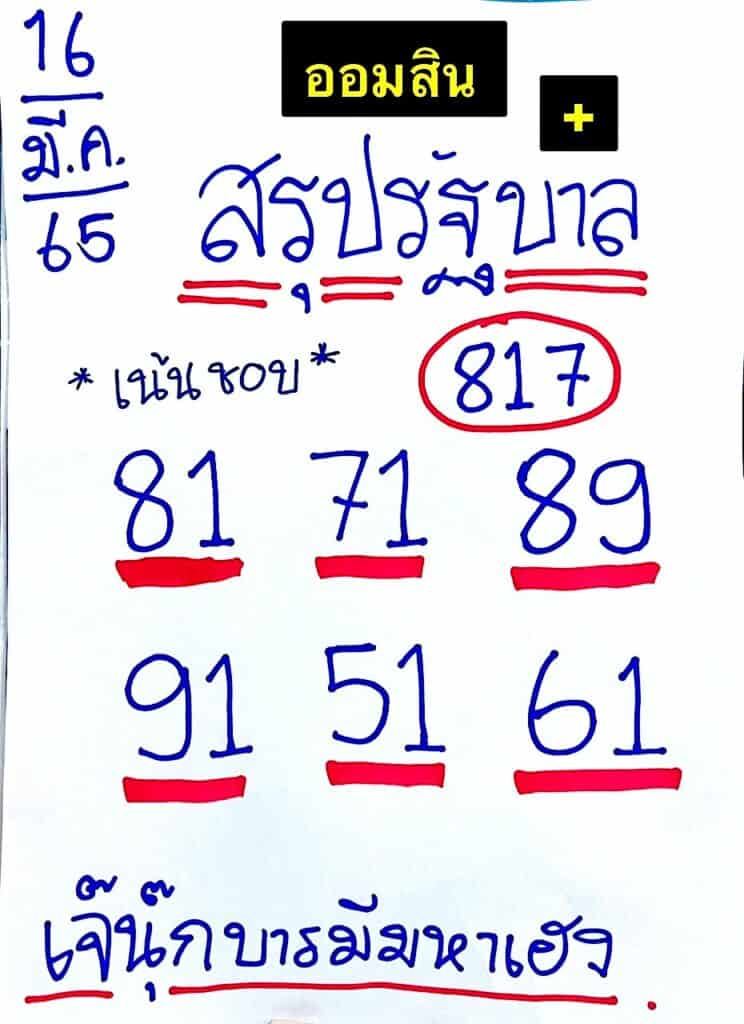 16
มี.ค.
65
ออมสิน
+
สรุปรัฐบาล
*เน้นชอบ*
817
81 71 89
91 51 61
เจ๊นุ๊กบารมีมหาเฮง.